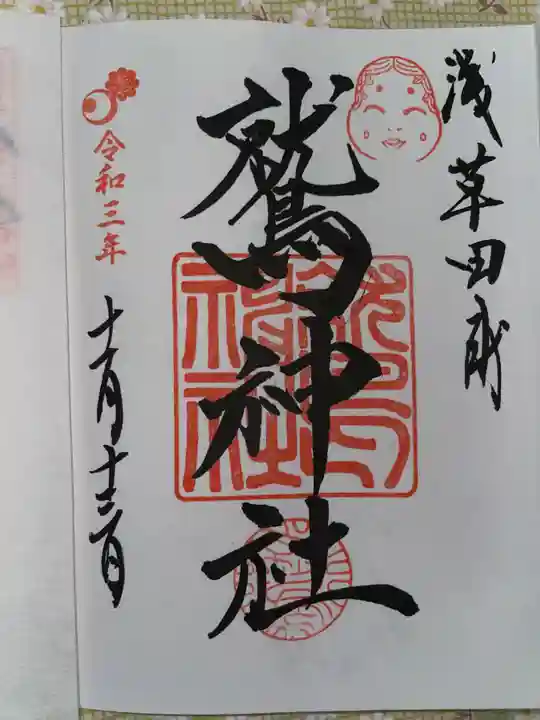 浅草田圃
鷲神社
令和三年
十一月十三日